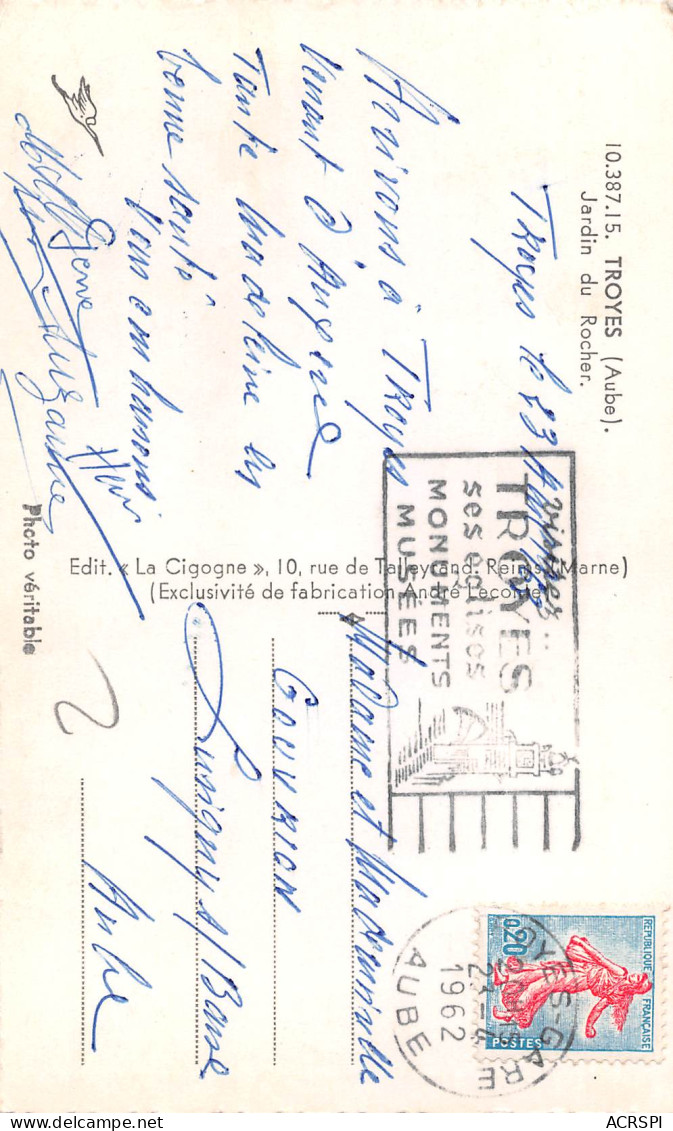 10.387.15. TROYES (Aube).
Jardin du Rocher.
Troyes le 23
Arrivons à Troyes
venant d'
Tante Madeleine en
bonne santé
Vous embrassons
Edit. « La Cigogne », 10, rue de Talleyrand, Reims (Marne)
(Exclusivité de fabrication André Leconte)
Photo véritable
visitez...
TROYES
ses églises
MONUMENTS
MUSÉES
REPUBLIQUE FRANÇAISE
0,20
POSTES
TROYES-GARE
1962
AUBE
Madame et Mademoiselle
GOUVRION
Lusigny s/ Barse
Aube
2
ACRSPI